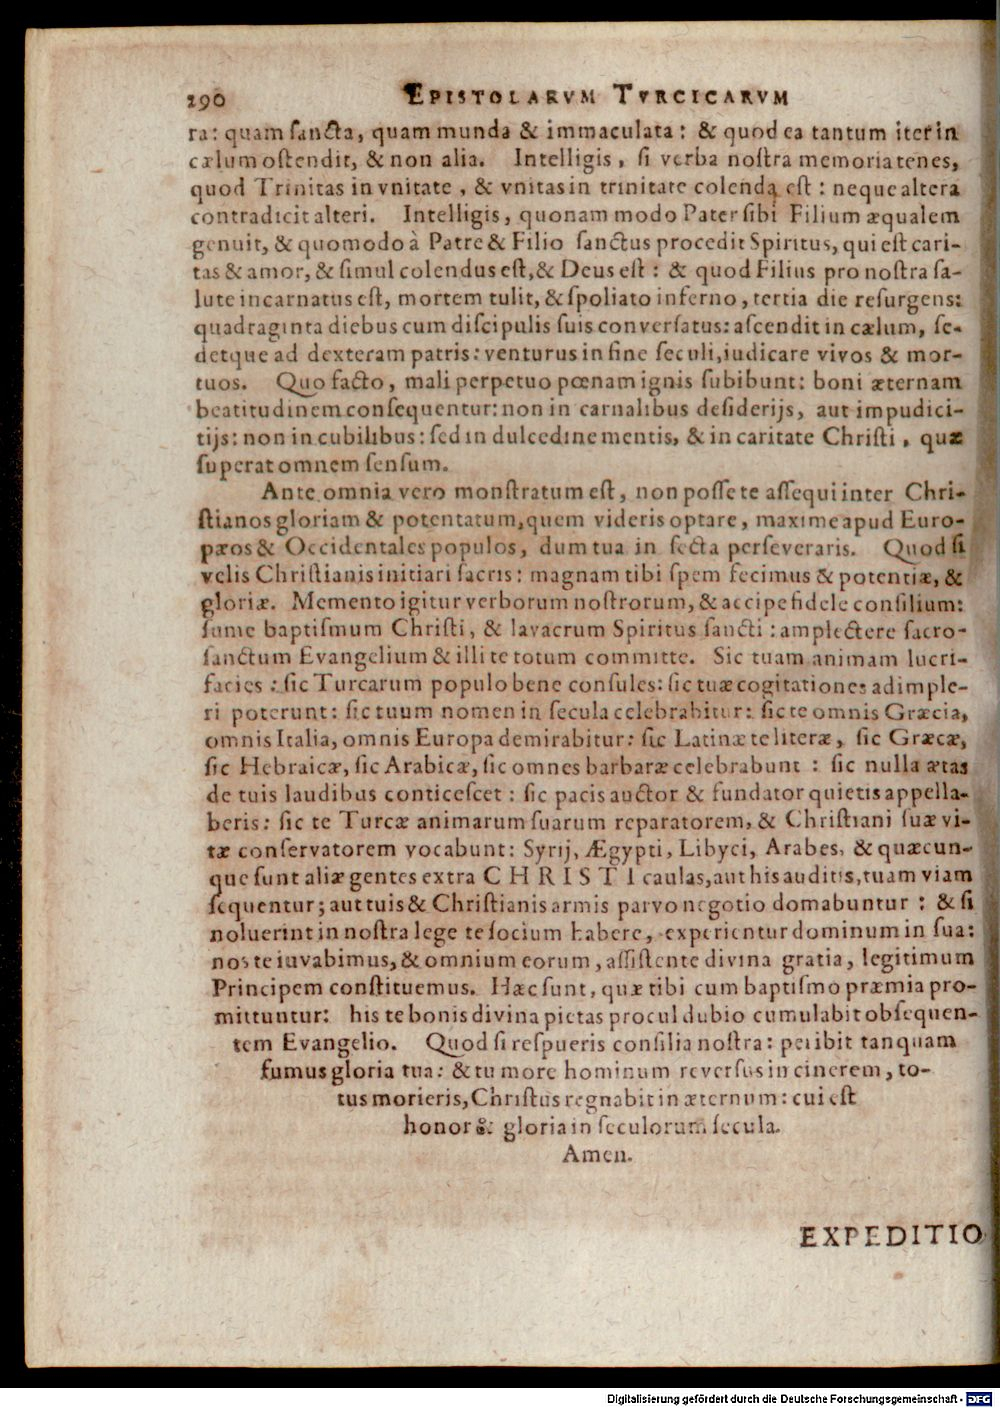 290 EPISTOLARVM TVRCICARVM
ra: quam ſancta, quam munda & immaculata: & quod ea tantum iter in
cælum oſtendit, & non alia. Intelligis, ſi verba noſtra memoria tenes,
quod Trinitas in vnitate, & vnitas in trinitate colenda eſt: neque altera
contradicit alteri. Intelligis, quonam modo Pater ſibi Filium æqualem
genuit, & quomodo à Patre & Filio ſanctus procedit Spiritus, qui eſt cari-
tas & amor, & ſimul colendus eſt, & Deus eſt: & quod Filius pro noſtra ſa-
lute incarnatus eſt, mortem tulit, & ſpoliato inferno, tertia die reſurgens:
quadraginta diebus cum diſcipulis ſuis converſatus: aſcendit in cælum, ſe-
detque ad dexteram patris: venturus in fine ſeculi, iudicare vivos & mor-
tuos. Quo facto, mali perpetuo pœnam ignis ſubibunt: boni æternam
beatitudinem conſequentur: non in carnalibus deſiderijs, aut impudici-
tijs: non in cubilibus: ſed in dulcedine mentis, & in caritate Chriſti, quæ
ſuperat omnem ſenſum.
Ante omnia vero monſtratum eſt, non poſſe te aſſequi inter Chri-
ſtianos gloriam & potentatum, quem videris optare, maxime apud Euro-
pæos & Occidentales populos, dum tua in ſecta perſeveraris. Quod ſi
velis Chriſtianis initiari ſacris: magnam tibi ſpem fecimus & potentiæ, &
gloriæ. Memento igitur verborum noſtrorum, & accipe fidele conſilium:
ſume baptiſmum Chriſti, & lavacrum Spiritus ſancti: amplectere ſacro-
ſanctum Evangelium & illi te totum committe. Sic tuam animam lucri-
facies: ſic Turcarum populo bene conſules: ſic tuæ cogitationes adimple-
ri poterunt: ſic tuum nomen in ſecula celebrabitur: ſic te omnis Græcia,
omnis Italia, omnis Europa demirabitur: ſic Latinæ te literæ, ſic Græcæ,
ſic Hebraicæ, ſic Arabicæ, ſic omnes barbaræ celebrabunt: ſic nulla ætas
de tuis laudibus conticeſcet: ſic pacis auctor & fundator quietis appella-
beris: ſic te Turcæ animarum ſuarum reparatorem, & Chriſtiani ſuæ vi-
tæ conſervatorem vocabunt: Syrij, Ægypti, Libyci, Arabes, & quæcun-
que ſunt aliæ gentes extra CHRISTI caulas, aut his auditis, tuam viam
ſequentur; aut tuis & Chriſtianis armis parvo negotio domabuntur: & ſi
noluerint in noſtra lege te ſocium habere, experientur dominum in ſua:
nos te iuvabimus, & omnium eorum, aſſiſtente divina gratia, legitimum
Principem conſtituemus. Hæc ſunt, quæ tibi cum baptiſmo præmia pro-
mittuntur: his te bonis divina pietas procul dubio cumulabit obſequen-
tem Evangelio. Quod ſi reſpueris conſilia noſtra: peribit tanquam
fumus gloria tua: & tu more hominum reverſus in cinerem, to-
tus morieris, Chriſtus regnabit in æternum: cui eſt
honor & gloria in ſeculorum ſecula.
Amen.
EXPEDITIO
Digitalisierung gefördert durch die Deutsche Forschungsgemeinschaft - DFG